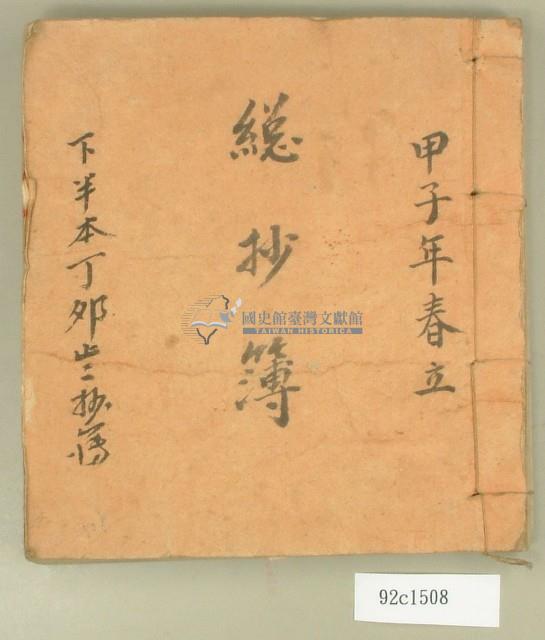 甲子年春立
総抄簿
下半本丁卯
抄
國史館臺灣文獻館
TAIWAN HISTORICA
92c1508